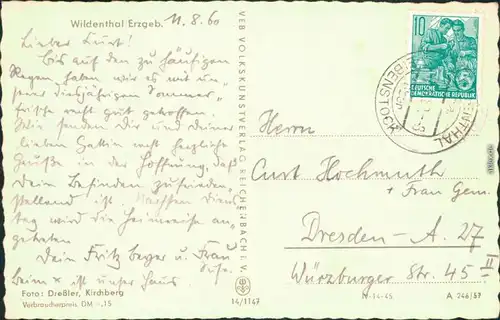 Wildenthal Erzgeb. 11.8.60
Lieber Curt!
Bis auf den zu häufigen
Regen haben wir es mit un-
serer diesjährigen Sommer-
frische recht gut getroffen.
Wir senden Dir und Deiner
lieben Gattin recht herzliche
Grüße in der Hoffnung, daß
Dein Befinden zufrieden-
stellend ist. Nächsten Diens-
tag wird die Heimreise an-
getreten
Dein Fritz Beyer u. Frau
Beim x ist unser Haus.
Foto: Dreßler, Kirchberg
Verbraucherpreis DM -,15
VEB VOLKSKUNSTVERLAG REICHENBACH I. V.
14/1147
10
DEUTSCHE
DEMOKRATISCHE REPUBLIK
EIBENSTOCK
Herrn
Curt Hochmuth
+ Frau Gem.
Dresden-A. 27
Würzburger Str. 45 II
N-14-45 A 246/59